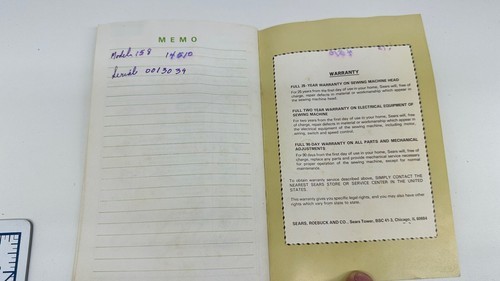 MEMO
Model 158 14510
Serial 0013039
WARRANTY
FULL 25-YEAR WARRANTY ON SEWING MACHINE HEAD
For 25 years from the first day of use in your home, Sears will, free of
charge, repair defects in material or workmanship which appear in
the sewing machine head.
FULL TWO YEAR WARRANTY ON ELECTRICAL EQUIPMENT OF
SEWING MACHINE
For two years from the first day of use in your home, Sears will, free
of charge, repair defects in material or workmanship which appear in
the electrical equipment of the sewing machine, including motor,
wiring, switch and speed control.
FULL 90-DAY WARRANTY ON ALL PARTS AND MECHANICAL
ADJUSTMENTS
For 90 days from the first day of use in your home, Sears will, free of
charge, replace any parts and provide mechanical service necessary
for proper operation of the sewing machine, except for normal
maintenance.
To obtain warranty service described above, SIMPLY CONTACT THE
NEAREST SEARS STORE OR SERVICE CENTER IN THE UNITED
STATES.
This warranty gives you specific legal rights, and you may also have other
rights which vary from state to state.
SEARS, ROEBUCK AND CO., Sears Tower, BSC 41-3, Chicago, IL 60684